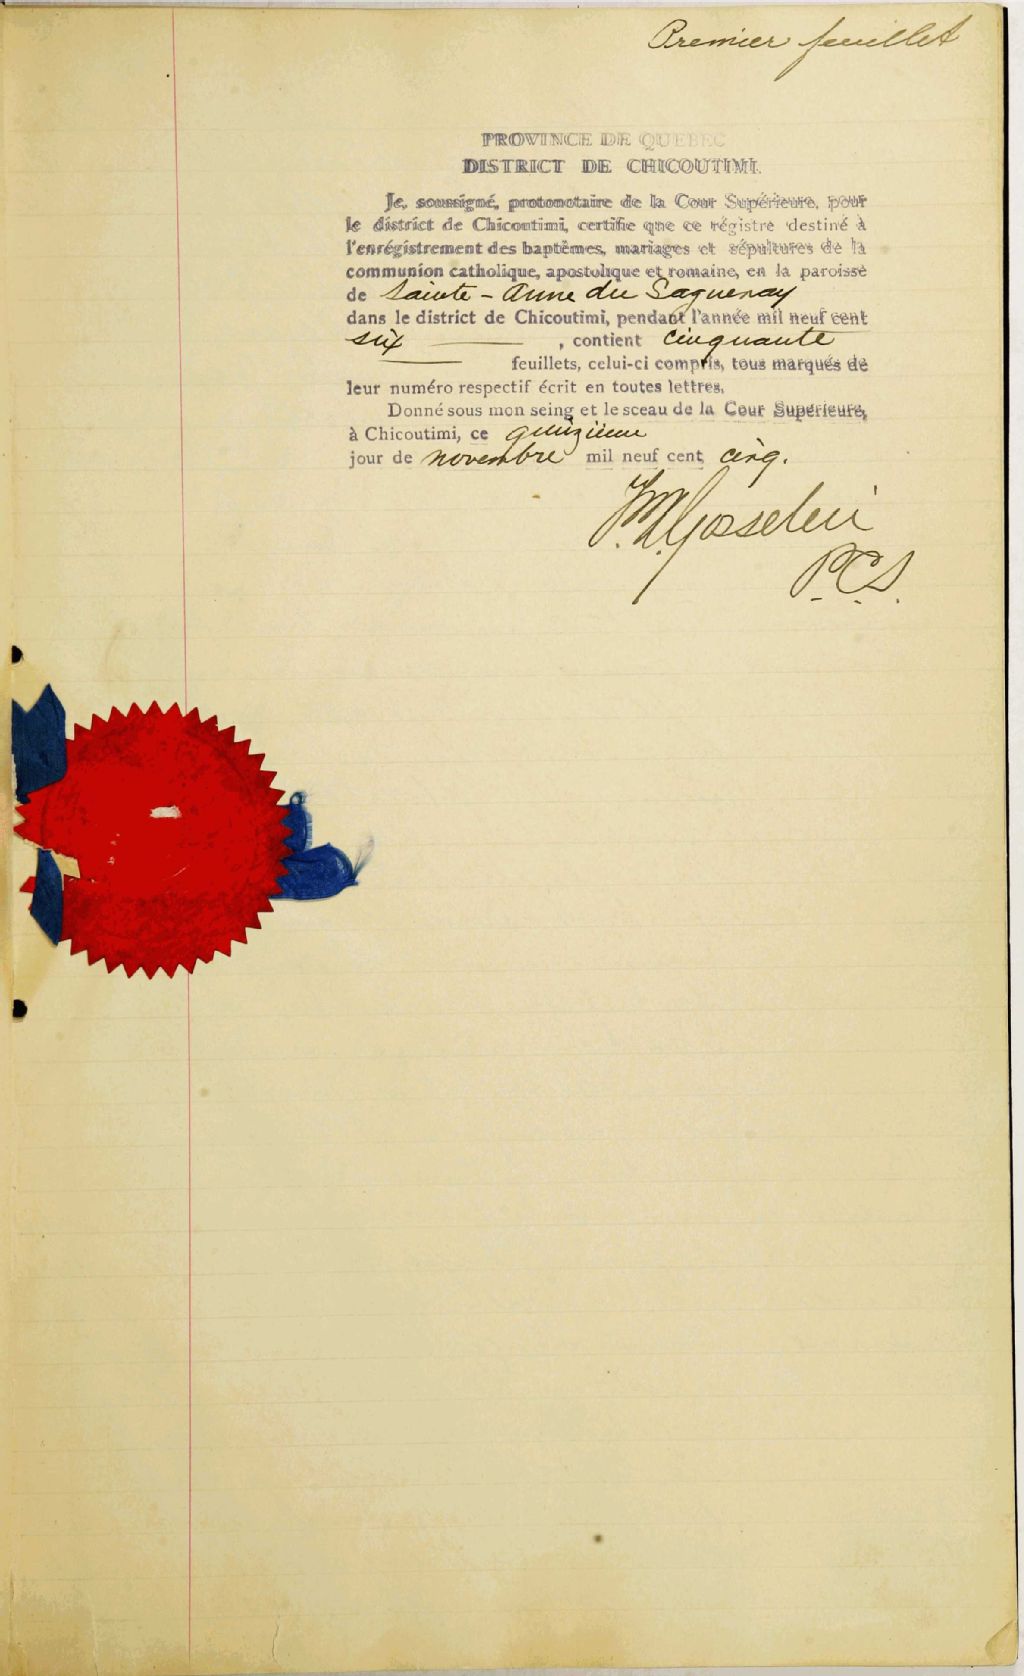 Premier feuillet
PROVINCE DE QUEBEC
DISTRICT DE CHICOUTIMI.
Je, soussigné, protonotaire de la Cour Supérieure, pour
le district de Chicoutimi, certifie que ce régistre destiné à
l'enrégistrement des baptêmes, mariages et sépultures de la
communion catholique, apostolique et romaine, en la paroisse
de Sainte-Anne du Saguenay
dans le district de Chicoutimi, pendant l'année mil neuf cent
six , contient cinquante
feuillets, celui-ci compris, tous marqués de
leur numéro respectif écrit en toutes lettres.
Donné sous mon seing et le sceau de la Cour Supérieure,
à Chicoutimi, ce quinzième
jour de novembre mil neuf cent cinq.
Gosselin
P.C.S.